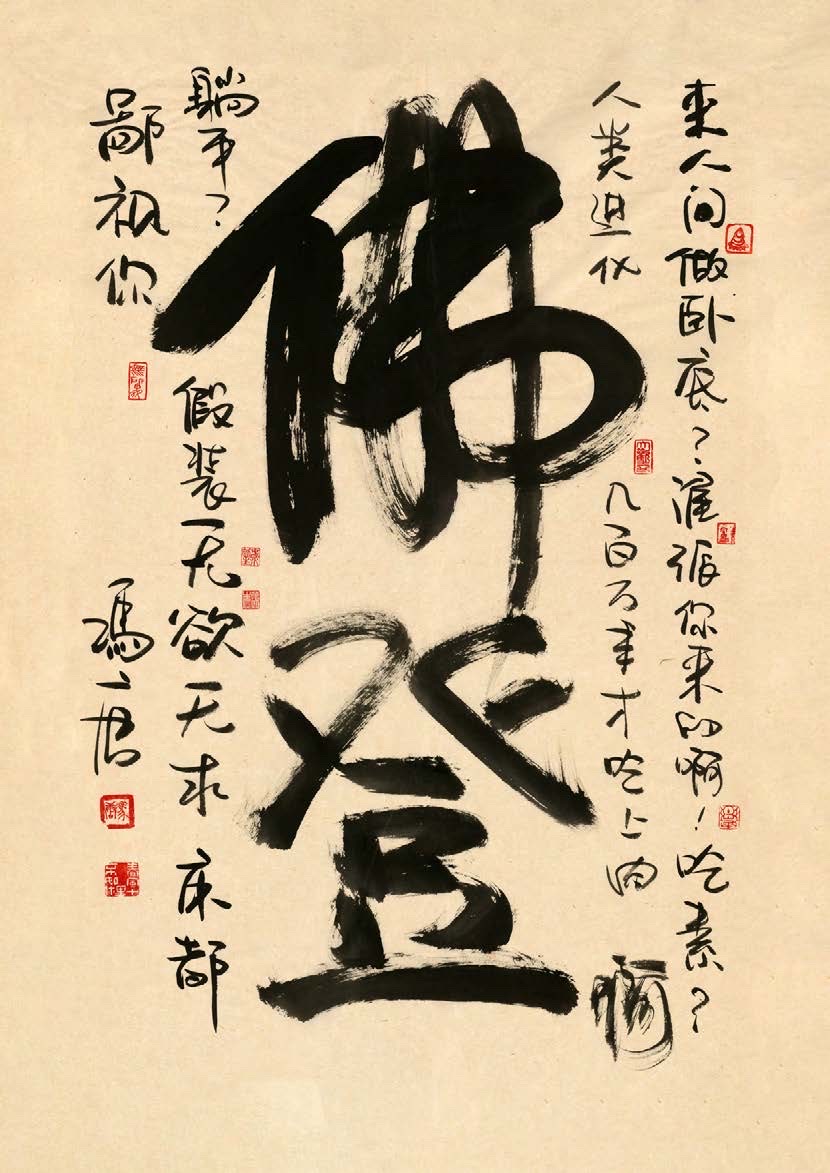 来人间做卧底？谁派你来的啊！吃素？
人类进化几百万年才吃上肉啊
佛登
躺平？假装无欲无求床都
鄙视你
冯唐